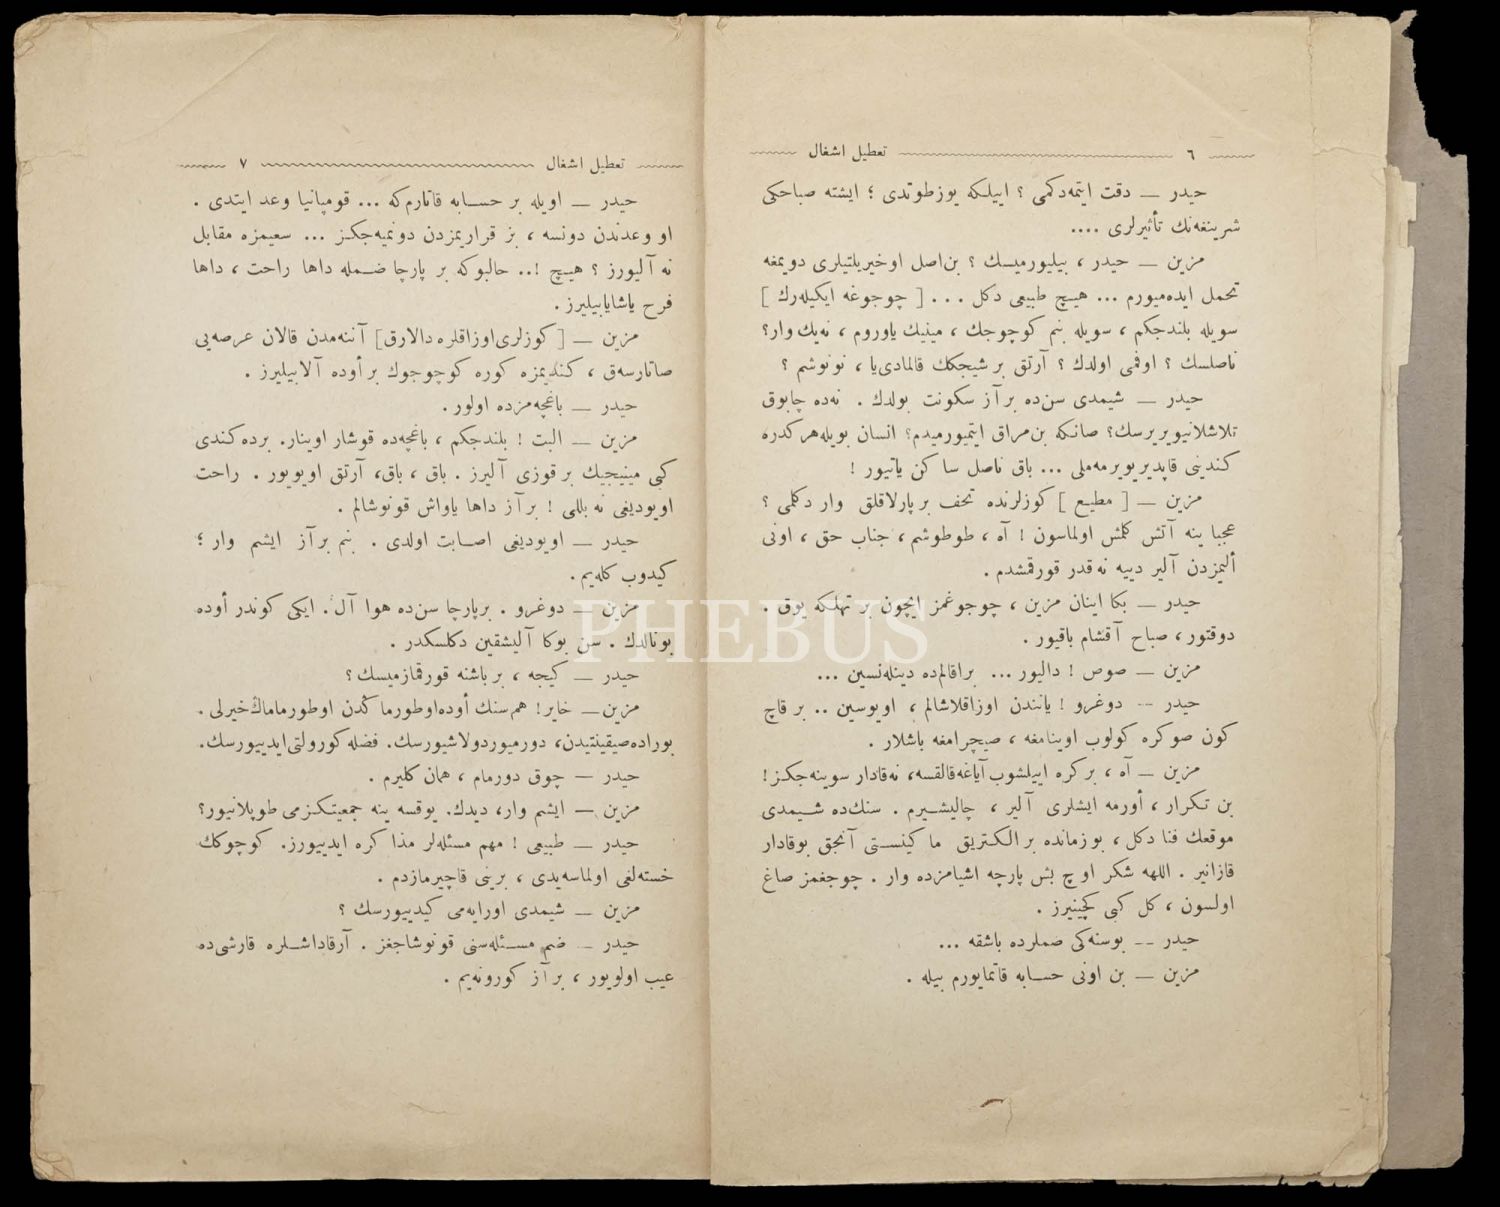 ٦ تعطيل اشغال
حيدر — دقت ايتمه‌دكمى ؟ اييلكه يوزطوتدى ؛ ايشته صباحكى
شرينغه‌نك تأثيرلرى ....
مزين — حيدر ، بيليورميسك ؟ بن‌اصل اوخيريلتيلرى دويمغه
تحمل ايده‌ميورم ... هيچ طبيعى دكل ... [ چوجوغه ايكيله‌رك ]
سويله بلندجكم ، سويله بنم كوچوجك ، مينيك ياوروم ، نه‌يك وار؟
ناصلسك ؟ اوفمى اولدك ؟ آرتق بر شيجكك قالمادى‌يا ، نونوشم ؟
حيدر — شيمدى سن‌ده بر آز سكونت بولدك . نه‌ده چابوق
تلاشلانيويريرسك؟ صانكه بن‌مراق ايتميورميدم؟ انسان بويله‌هركدره
كندينى قاپديريويرمه‌ملى ... باق ناصل ساكن ياتيور !
مزين — [ مطيع ] كوزلرنده تحف بر پارلاقلق وار دكلمى ؟
عجبا ينه آتش كلمش اولماسون ! آه ، طوطوشم ، جناب حق ، اونى
ألمزدن آلير دييه نه‌قدر قورقمشدم .
حيدر — بكا اينان مزين ، چوجوغمز ايچون بر تهلكه يوق .
دوقتور ، صباح آقشام باقيور .
مزين — صوص ! داليور ... براقالم‌ده دينله‌نسين ...
حيدر — دوغرو ! يانندن اوزاقلاشالم ، اويوسين .. بر قاچ
كون صوكره كولوب اوينامغه ، صيچرامغه باشلار .
مزين — آه ، بركره اييلشوب آياغه‌قالقسه، نه‌قادار سوينه‌جكز !
بن تكرار ، أورمه ايشلرى آلير ، چاليشيرم . سنك‌ده شيمدى
موقعك فنا دكل ، بوزمانده بر الكتريق ماكينستى آنجق بوقادار
قازانير . اللهه شكر اوچ بش پارچه اشيامزده وار . چوجغمز صاغ
اولسون ، كل كبى كچينيرز .
حيدر — بوسنه‌كى ضملرده باشقه ...
مزين — بن اونى حسابه قاتمايورم بيله .
تعطيل اشغال ٧
حيدر — اويله بر حسابه قاتارم‌كه ... قومپانيا وعد ايتدى .
او وعدندن دونسه ، بز قراريمزدن دونميه‌جكز ... سعيمزه مقابل
نه آليورز ؟ هيچ !.. حالبوكه بر پارچا ضمله داها راحت ، داها
فرح ياشايابيليرز .
مزين — [ كوزلرى‌اوزاقلره‌دالارق] آننه‌مدن قالان عرصه‌يى
صاتارسه‌ق ، كنديمزه كوره كوچوجوك بر أوده آلابيليرز .
حيدر — باغچه‌مزده اولور .
مزين — البت ! بلندجكم ، باغچه‌ده قوشار اوينار. برده‌كندى
كبى مينيجيك بر قوزى آليرز . باق ، باق، آرتق اويويور . راحت
اويوديغى نه بللى ! بر آز داها ياواش قونوشالم .
حيدر — اويوديغى اصابت اولدى . بنم بر آز ايشم وار ؛
كيدوب كله‌يم .
مزين — دوغرو . برپارچا سن‌ده هوا آل . ايكى كوندر أوده
بونالدك . سن بوكا آليشقين دكلسكدر .
حيدر — كيجه ، بر باشنه قورقمازميسك ؟
مزين— خاير! هم‌سنك أوده‌اوطورماكدن اوطورماماك‌خيرلى .
بوراده‌صيقينتيدن، دورميوردولاشيورسك. فضله‌كورولتى‌ايدييورسك.
حيدر — چوق دورمام ، همان كليرم .
مزين — ايشم وار، ديدك. يوقسه ينه جمعيتكزمى طوپلانيور؟
حيدر — طبيعى ! مهم مسئله‌لر مذاكره ايدييورز. كوچوكك
خسته‌لغى اولماسه‌يدى ، برينى قاچيرمازدم .
مزين — شيمدى اورايه‌مى كيدييورسك ؟
حيدر — ضم مسئله‌سنى قونوشاجغز . آرقاداشلره قارشى‌ده
عيب اولويور ، بر آز كورونه‌يم .
PHEBUS